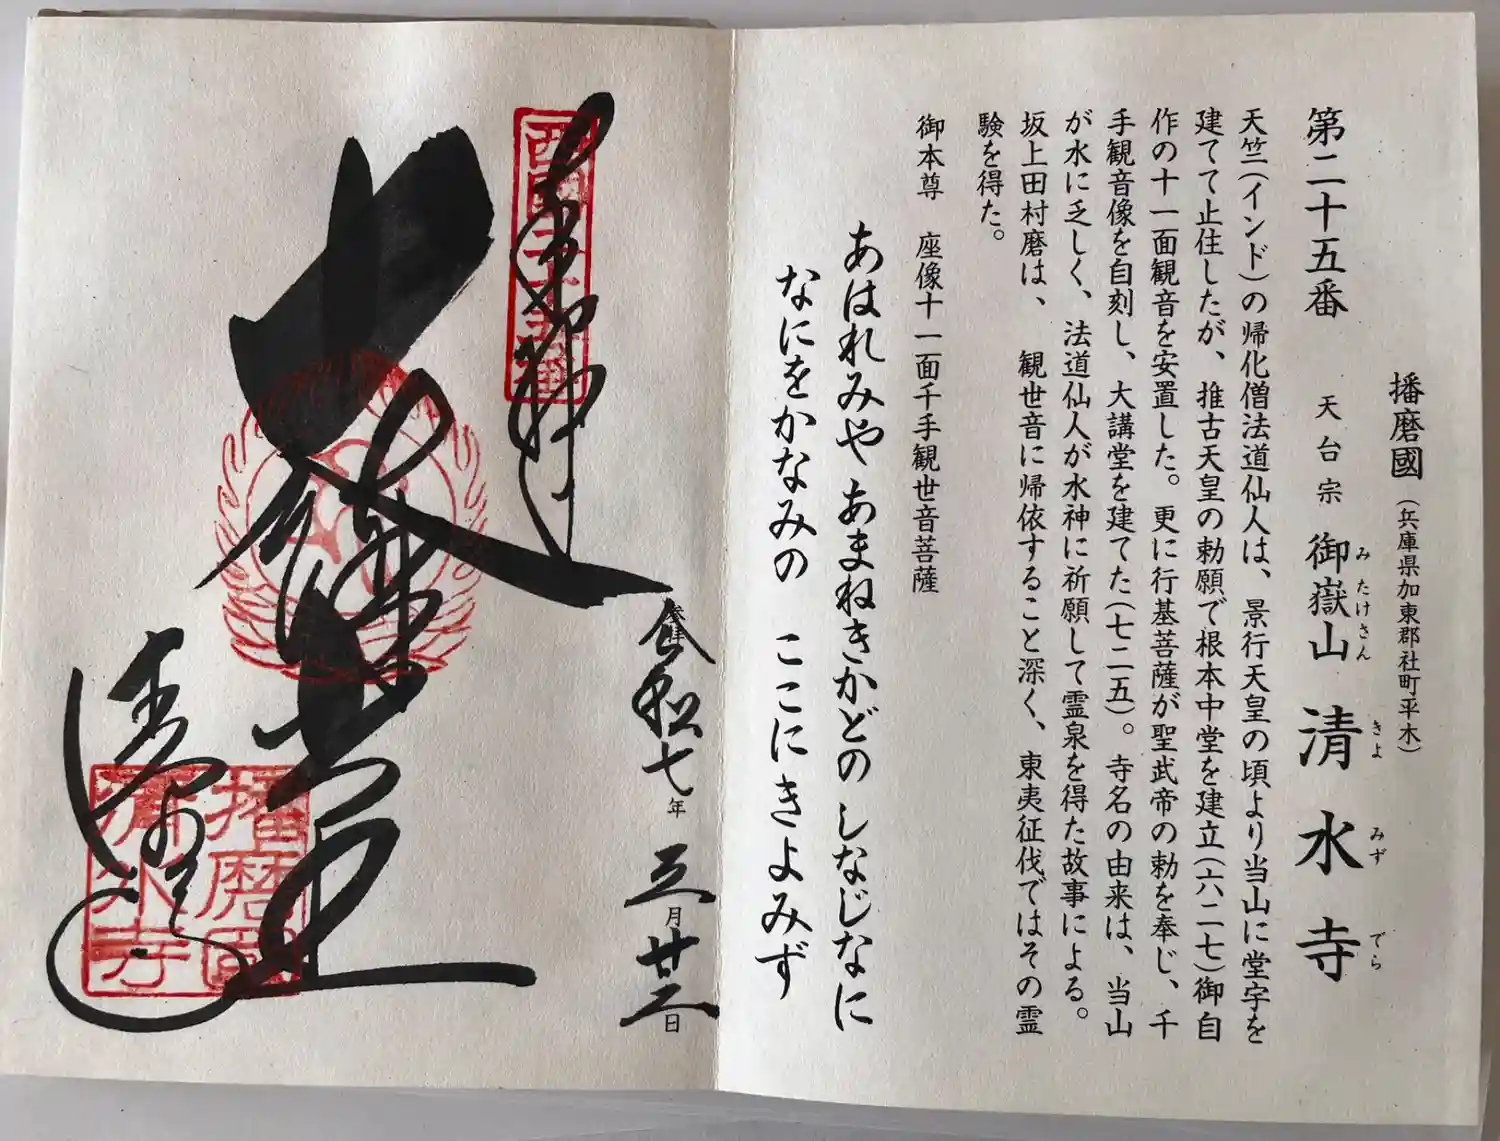 播磨國(兵庫県加東郡社町平木)
第二十五番 天台宗 御嶽山 清水寺
みたけさん きよみずでら
天竺(インド)の帰化僧法道仙人は、景行天皇の頃より当山に堂宇を
建てて止住したが、推古天皇の勅願で根本中堂を建立(六二七)御自
作の十一面観音を安置した。更に行基菩薩が聖武帝の勅を奉じ、千
手観音像を自刻し、大講堂を建てた(七二五)。寺名の由来は、当山
が水に乏しく、法道仙人が水神に祈願して霊泉を得た故事による。
坂上田村磨は、観世音に帰依すること深く、東夷征伐ではその霊
験を得た。
御本尊 座像十一面千手観世音菩薩
あはれみや あまねきかどの しなじなに
なにをかなみの ここにきよみず
奉拝
西国二十五番
令和七年 三月廿三日
大講堂
清水寺
播磨國
清水寺